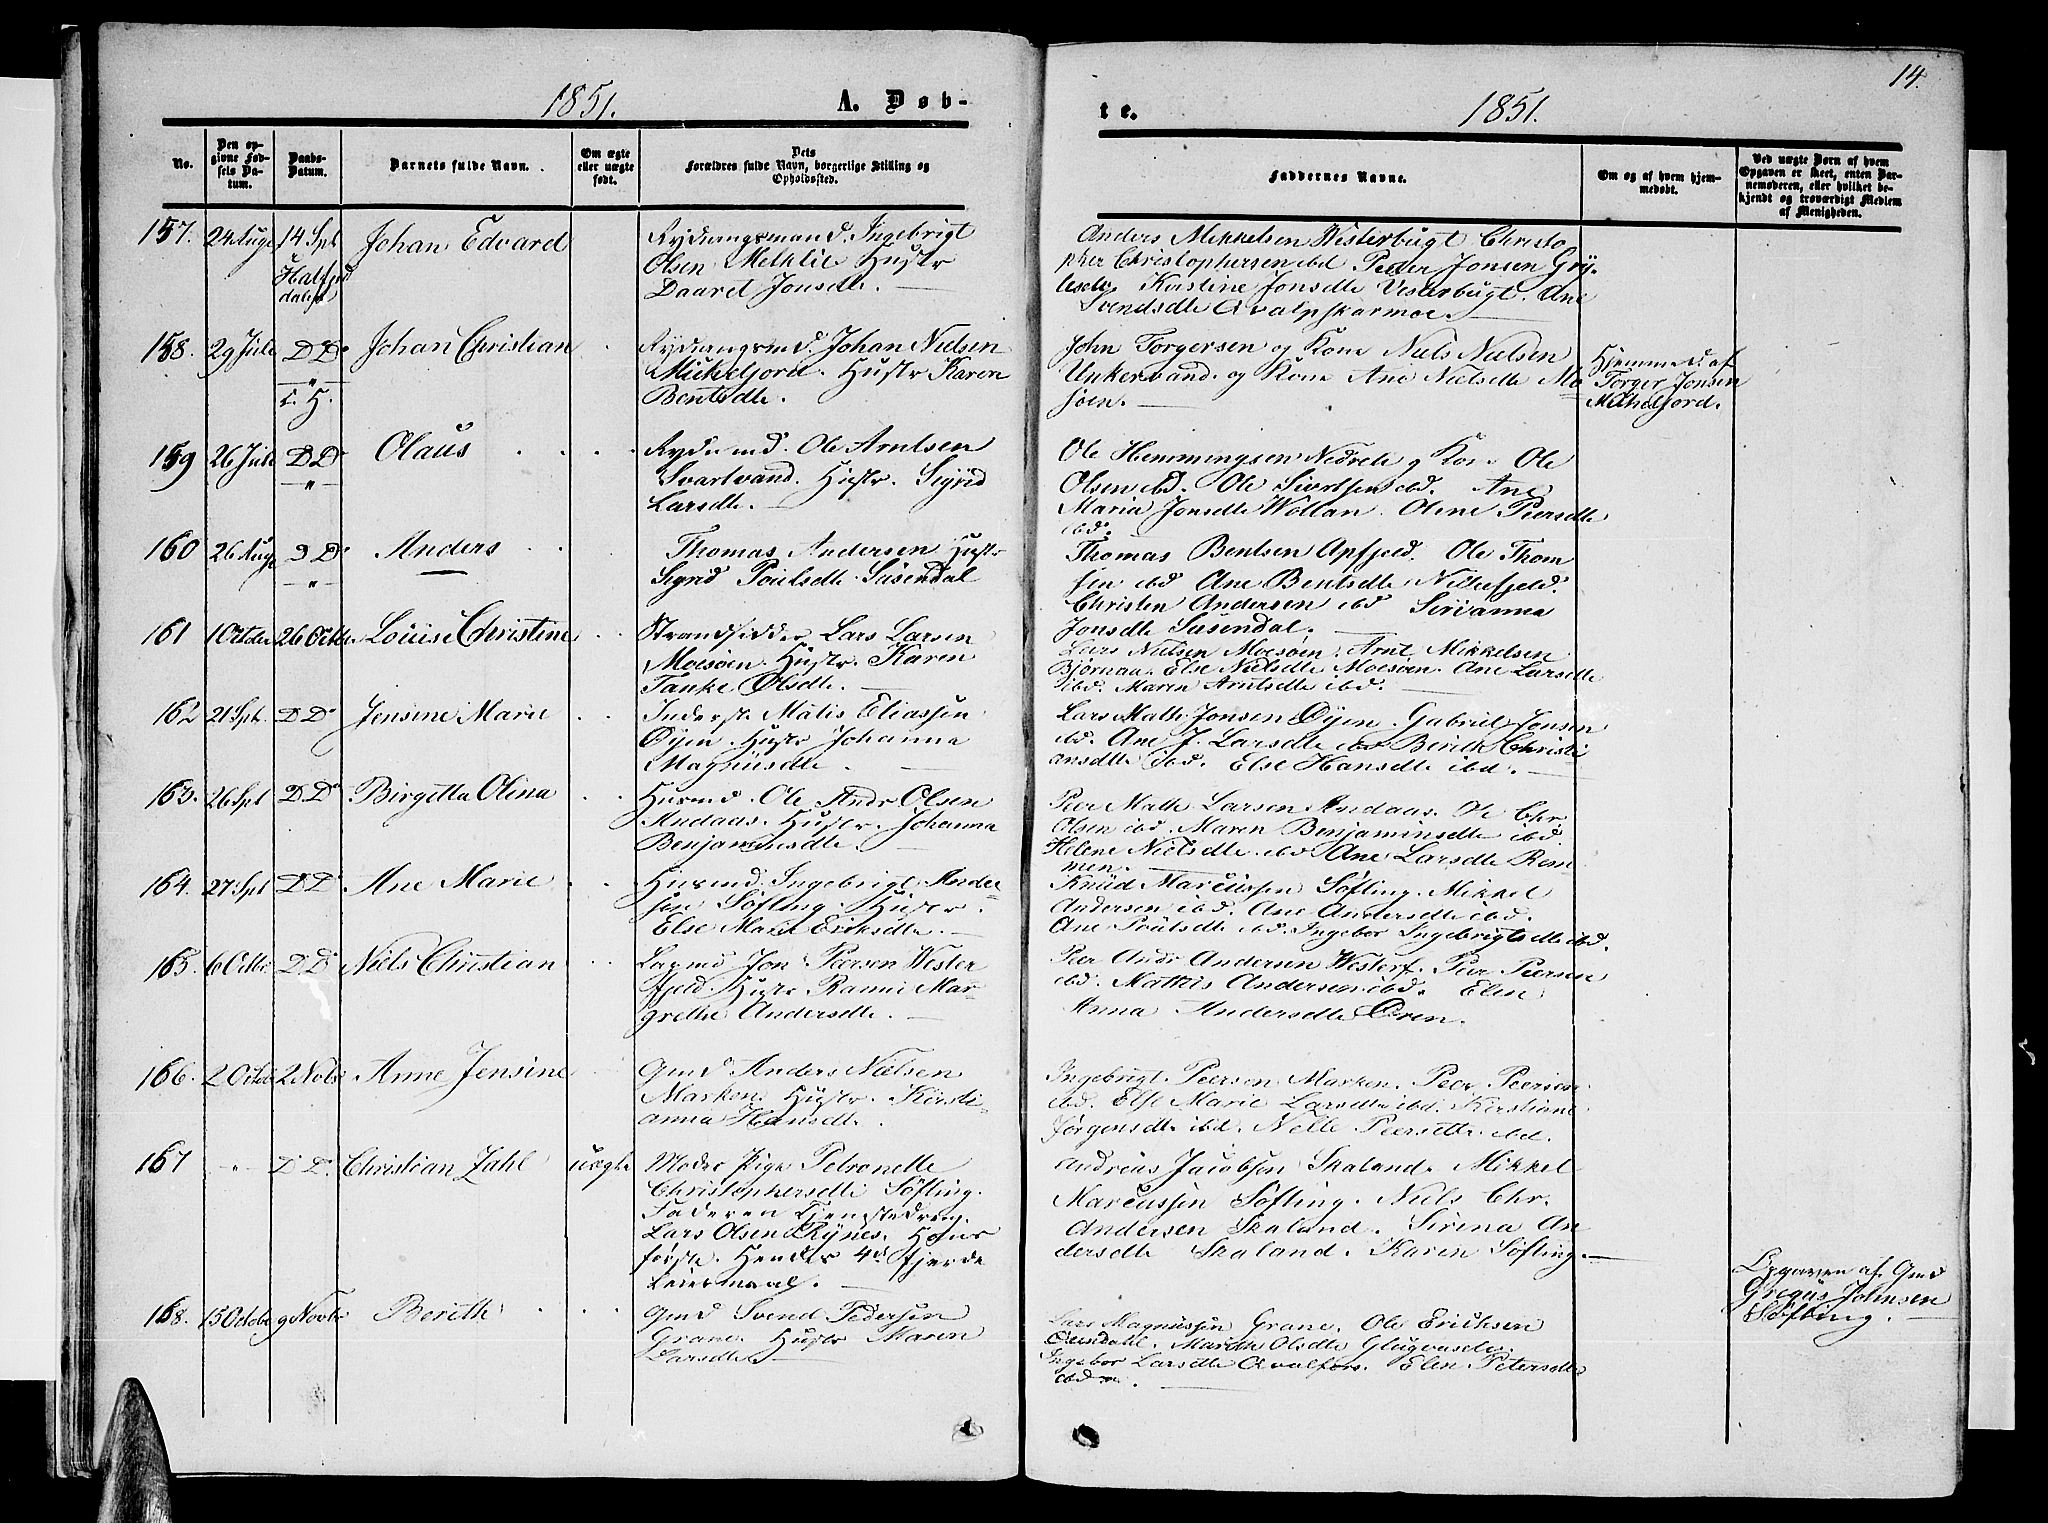 1851. A. Døb-
No.
Den op-
givne Fød-
sels Da-
tum.
Daabs-
Datum.
Barnets fulde Navn.
Om ægte
eller uægte
født.
Dets
Forældres fulde Navn, borgerlige Stilling og
Opholdssted.
157. 24 Auge 14 Spt Johan Edvard
Hatfjel
dalen
Rydningsmand. Ingebrigt
Olsen Melklie Hustr
Daaret Jonsdtr.
158. 29 Juli D D Johan Christian
i. H.
Rydningsmd. Johan Nielsen
Mickeljord. Hustr Karen
Bentsdtr.
159 26 Juli D D Olaus
Rydn md. Ole Arntsen
Svartvand. Hustr. Sigrid
Larsdtr.
160 26 Aug D D Anders
Thomas Andersen Hustr
Sigrid Poulsdtr. Susendal
161 1 Octbr 26 Octbr Louise Christine
Strandsidder Lars Larsen
Mosøen. Hustr. Karen
Tanke Olsdtr.
162 21 Spt. D D Jensine Marie
Inderst. Matis Eliassen
Øjen. Hustr Johanna
Magnusdtr.
163. 26 Spt D D Birgitta Olina
Husmd. Ole Andr Olsen
Andaas. Hustr. Johanna
Benjaminsdtr.
164. 27. Spt D D Ane Marie
Husmd. Ingebrigt Ander-
sen Søfting. Hustr.
Else Marie Eriksdtr.
165. 6 Octbr D D Niels Christian
Jon Peersen Wester
fjeld. Hustr. Ranni Mar-
grethe Andersdtr.
166. 2 Octbr 2 Novbr Anne Jensine
Gmd Anders Nielsen
Marken. Hustr. Kirsti-
anna Hansdtr.
167 " D D. Christian Zahl uægte
Moder Pige Petronelle
Christophersdtr Søfting.
Faderen Tjenestedreng
Lars Olsen Rynes. Hans
første. Hendes 4d fjerde
Leiermaal.
168. 15 Octobr 9 Novbr Berith
Gmd Svend Pedersen
Grane. Hustr Maren
Larsdtr.
14.
te. 1851.
Faddernes Navne.
Om og af hvem hjem-
medøbt.
Ved uægte Børn af hvem
Opgaven er skeet, enten Bar-
nemoderen, eller hvilket be-
kjendt og troværdigt Medlem
af Menigheden.
Anders Mikkelsen Westerbugt Christo
pher Christophersen ibd Peder Jonsen Gry-
teselv. Kirstine Jonsdtr Vesterbugt. Ane
Svendsdtr Qvalpskarmoe.
John Torgersen og Kone Niels Nielsen
Unkervand og Kone Ane Nielsdtr Mo-
sjøen.
Hjemmed. af
Torger Jonsen
Mikkeljord.
Ole Hemmingsen Nedrelie og Kone Ole
Olsen ibd. Ole Sivertsen ibd. Ane
Maria Jonsdtr Wollan. Oline Peersdtr
ibd.
Thomas Bentsen Apfjeld. Ole Thom
sen ibd Ane Bentsdtr
Christen Andersen ibd Sirianna
Jonsdtr Susendal.
Lars Nielsen Mosøen. Arnt Mikkelsen
Bjørnaa. Else Nielsdtr Mosøen. Ane Larsdtr
ibd. Maren Arntsdtr ibd.
Lars Math. Jonsen Øjen. Gabriel Jonsen
ibd. Ane J. Larsdtr ibd Berith Christi
ansdtr ibd. Else Hansdtr ibd.
Peer Math Larsen Andaas. Ole Chr
Olsen ibd. Maren Benjaminsdtr ibd
Helene Nielsdtr ibd Ane Larsdtr Rem
men.
Knud Marcussen Søfting. Mikkel
Andersen ibd. Ane Andersdtr ibd.
Ane Poulsdtr ibd. Ingebor Ingebrigtsdtr ibd.
Peer Andr Andersen Westerf. Peer Peersen
ibd. Mathis Andersen ibd. Elen
Anna Andersdtr Øren.
Ingebrigt Peersen Marken. Peer Peersen
ibd. Else Marie Larsdtr ibd. Kirstiane
Jørgensdtr ibd. Nelle Peersdtr ibd.
Andreas Jacobsen Skaland. Mikkel
Marcussen Søfting. Niels Chr.
Andersen Skaland. Sirina An
dersdtr Skaland. Karen Søfting.
Opgaven af Gmd
Gregus Johnsen
Søfting.
Lars Magnussen Grane. Ole Ericksen
Marith Olsdtr
Ingebor Larsdtr Qvalfors. Elen Petersdtr
ibd.